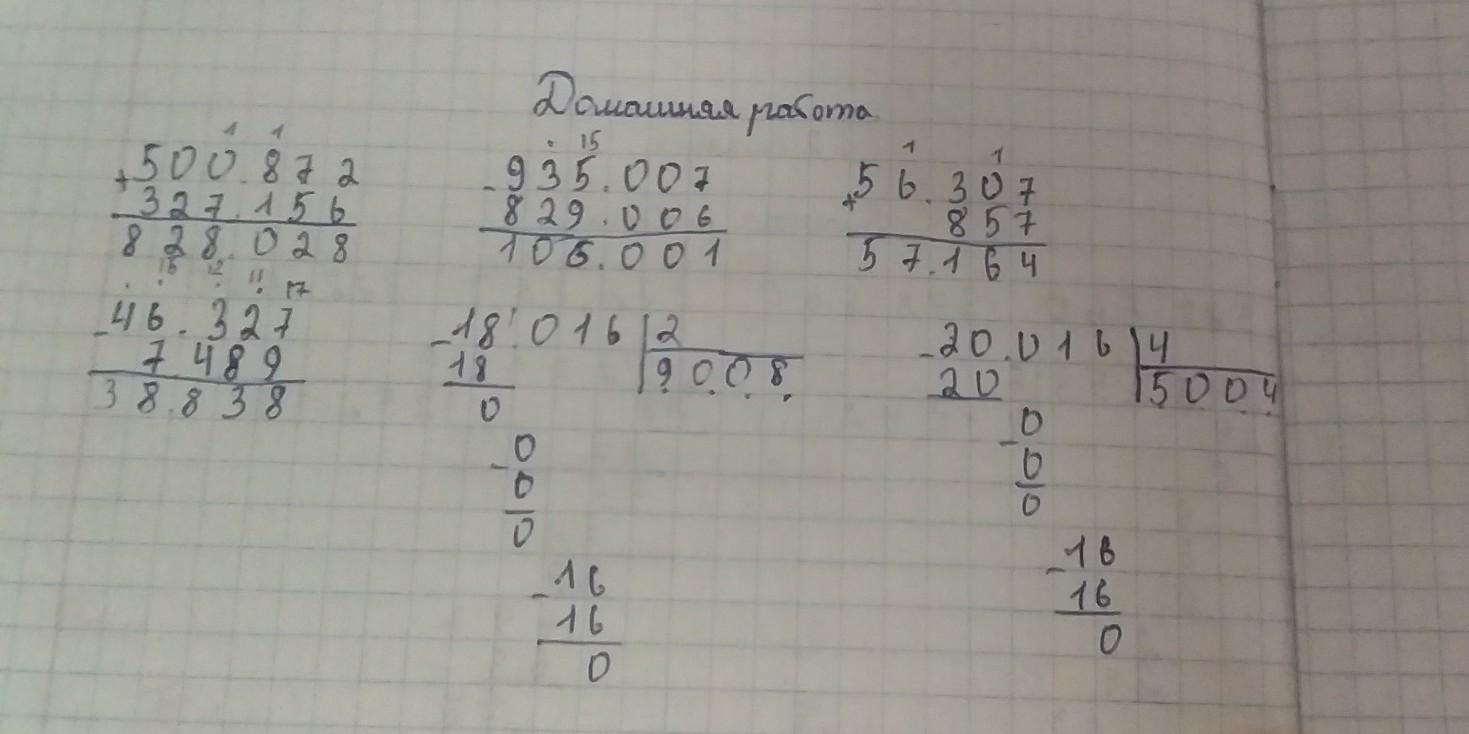 Домашняя работа
1 1
+ 500.872
327.156
828.028
15
- 935.007
829.006
106.001
1 1
+ 56.307
857
57.164
15 12 11 17
- 46.327
7 489
38.838
- 18.016 | 2
18 | 9008
0
- 0
0
0
- 16
16
0
- 20.016 | 4
20 | 5004
0
- 0
0
- 16
16
0